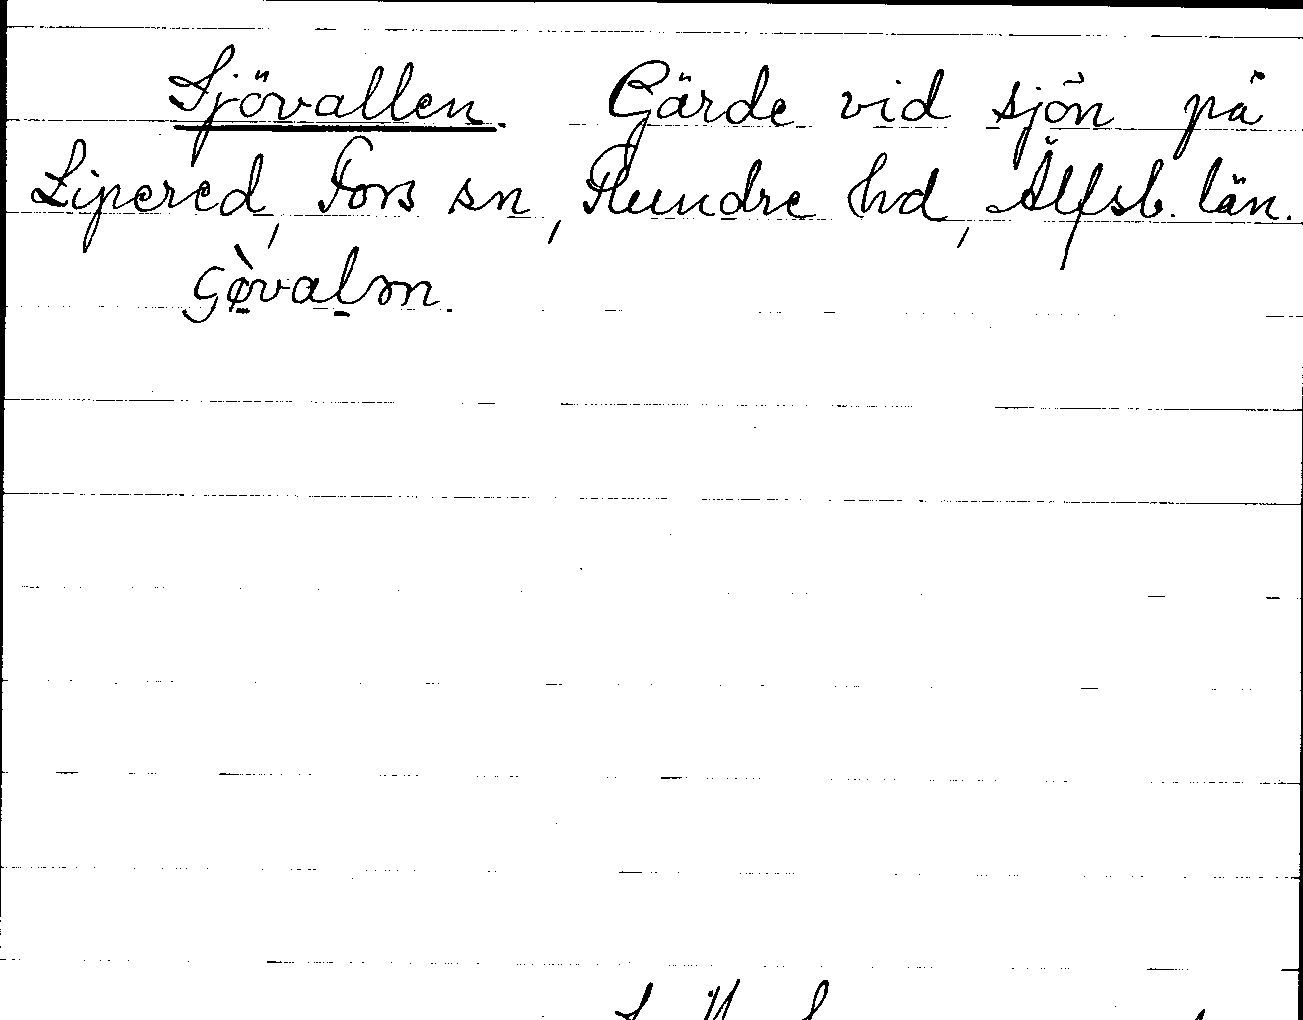 Sjövallen. Gärde vid sjön på
Lipered, Fors sn, Flundre hd, Älfsb. län.